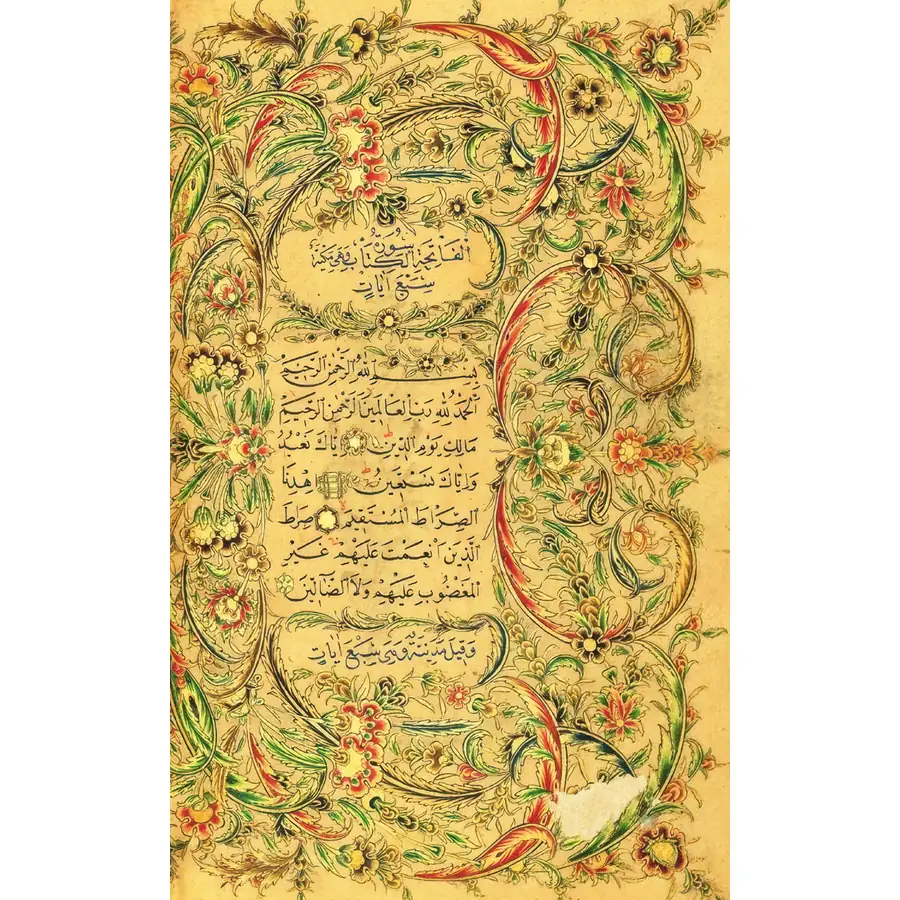 سورة
الفاتحة الكتاب وهي مكية
سبع ايات
بسم الله الرحمن الرحيم
الحمد لله رب العالمين الرحمن الرحيم
مالك يوم الدين اياك نعبد
واياك نستعين اهدنا
الصراط المستقيم صراط
الذين انعمت عليهم غير
المغضوب عليهم ولا الضالين
وقيل مدينة وهي سبع ايات